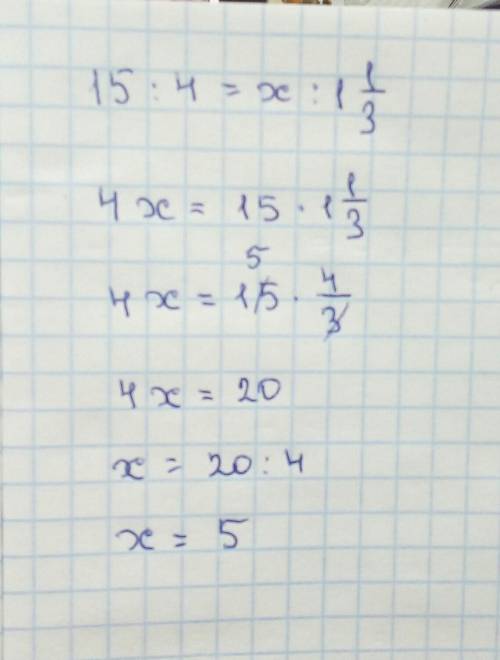 15 : 4 = x : 1 1/3
4x = 15 · 1 1/3
5
4x = 15 · 4/3
4x = 20
x = 20 : 4
x = 5